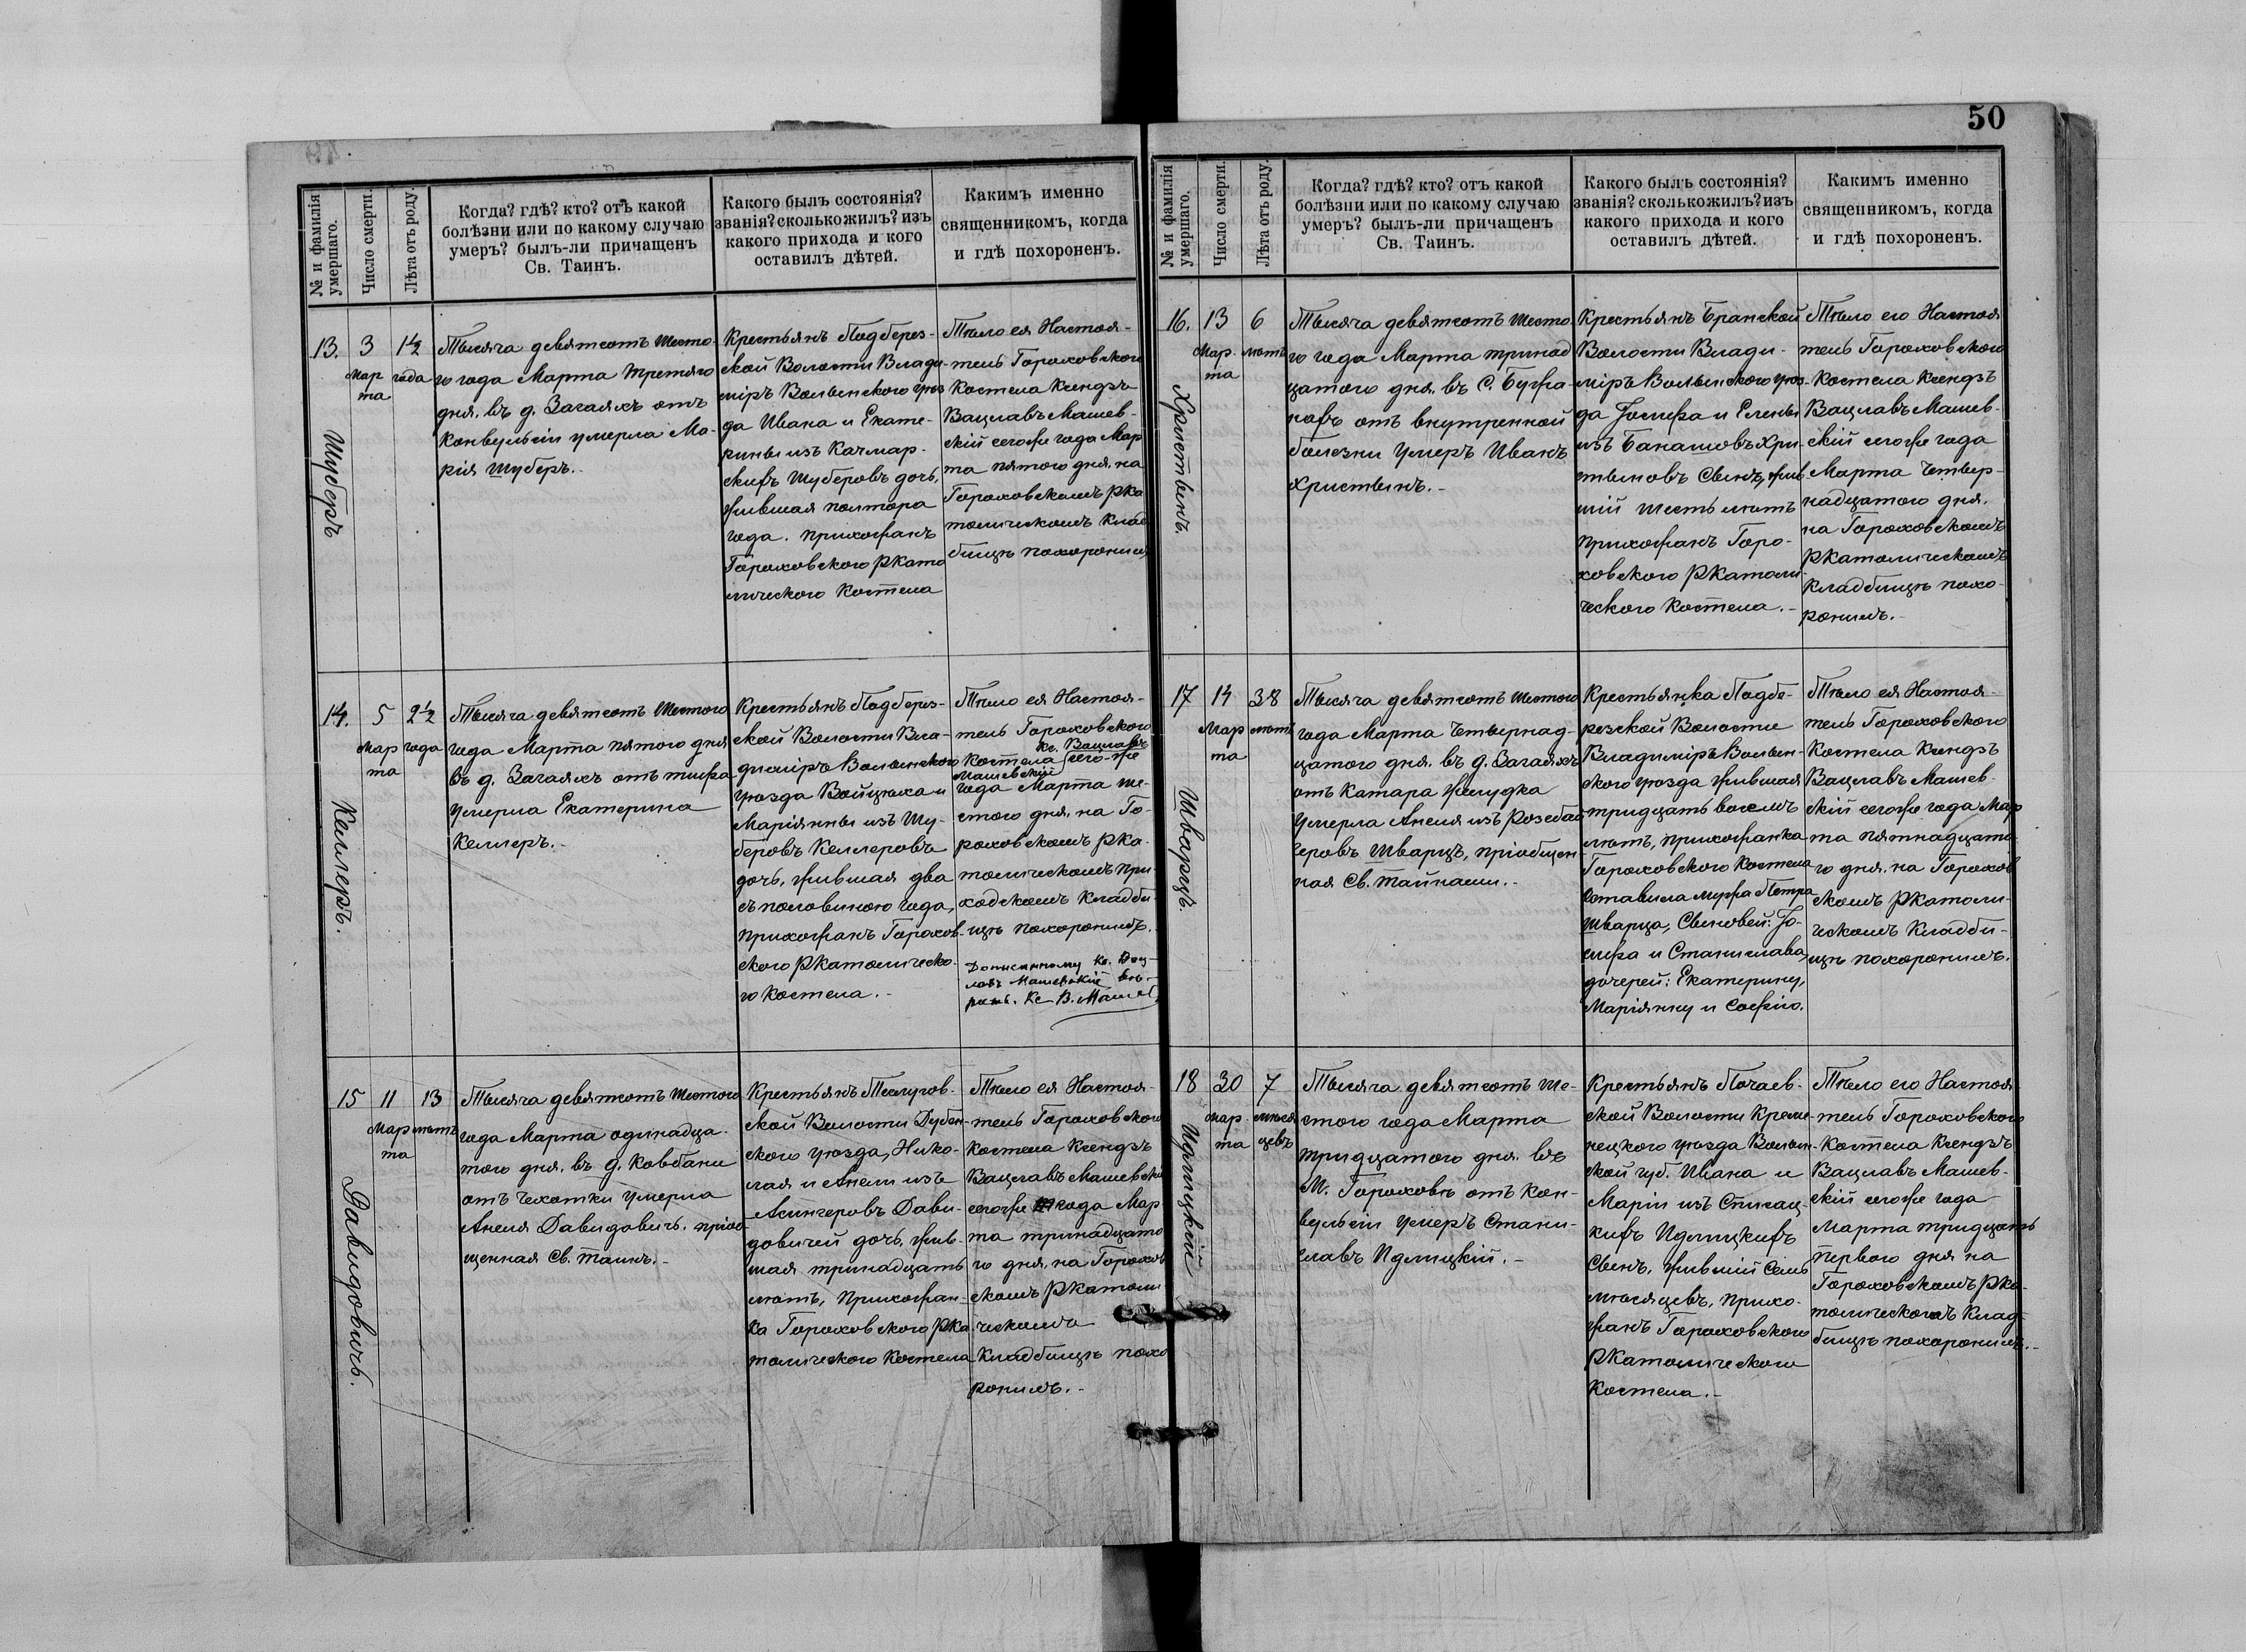 50
№ и фамилія умершаго.
Число смерти.
Лѣта отъ роду.
Когда? гдѣ? кто? отъ какой
болѣзни или по какому случаю
умеръ? былъ-ли причащенъ
Св. Таинъ.
Какого былъ состоянія?
званія? сколько жилъ? изъ
какого прихода и кого
оставилъ дѣтей.
Какимъ именно
священникомъ, когда
и гдѣ похороненъ.
13.
Шуберъ
3
Мар
та
1½
года
Тысяча девятсотъ шесто-
го года Марта третяго
дня. въ д. Загаяхъ отъ
конвульсіи умерла Ма-
рія Шуберъ.-
Крестьянъ Подберез-
ской Волости Влади-
міръ Волынского уѣз
да Ивана и Екате-
рины изъ Качмар-
скихъ Шуберовъ дочь,
жившая полтора
года. прихожанъ
Гороховского Ркато
лического Костела
Тѣло ея Настоя-
тель Гороховского
Костела Ксендзъ
Вацлавъ Машев-
скій сегоже года Мар
та пятого дня. на
Гороховскомъ Рка
толическомъ клад
бищѣ похоронилъ
14.
Келлеръ.
5
Мар
та
2½
года
Тысяча девятсотъ шестого
года Марта пятого дня
въ д. Загаяхъ отъ тифа
умерла Екатерина
Келлеръ.-
Крестьянъ Подберез-
ской Волости Вла-
диміръ Волынского
уѣзда Войцѣха и
Маріянны изъ Шу-
беровъ Келлеровъ
дочь, жившая два
съ половиною года,
прихожанъ Горохов-
ского Ркатоличес­ко-
го Костела.-
Тѣло ея Настоя-
тель Гороховского
Кс. Вацлавъ
Костела сего-же
Машевскій
года Марта ше-
стого дня. на Го-
роховскомъ Рка-
толическомъ При-
ходскомъ Кладби-
щѣ похоронилъ.
Дописанному Кс. Вац-
лавъ Машевскій вѣ-
рить. Кс В. Машев
15
Давидовичъ.
11
Мар
та
13
лѣтъ
Тысяча девятсотъ шестого
года Марта одинадца-
того дня. въ д. Ковбани
отъ чехотки умерла
Анеля Давидовичъ. пріоб
щенная Св. Таинъ.-
Крестьянъ
ской Волости Дубен-
ского уѣзда, Нико-
лая и Анели изъ
Асингеровъ Дави-
довичей дочь, жив-
шая тринадцать
лѣтъ, Прихожан-
ка Гороховского Рка
толического Костела
Тѣло ея Настоя-
тель Гороховского
Костела Ксендзъ
Вацлавъ Машевскій
сегоже года Мар
та тринадцато
го дня. на Горохов
скомъ Ркатоли
ческомъ
Кладбищѣ похо
ронилъ.-
№ и фамилія умершаго.
Число смерти.
Лѣта отъ роду.
Когда? гдѣ? кто? отъ какой
болѣзни или по какому случаю
умеръ? былъ-ли причащенъ
Св. Таинъ.
Какого былъ состоянія?
званія? сколько жилъ? изъ
какого прихода и кого
оставилъ дѣтей.
Какимъ именно
священникомъ, когда
и гдѣ похороненъ.
16.
Христынъ.
13
Мар-
та
6
лѣтъ
Тысяча девятсотъ шесто-
го года Марта тринад
цатого дня. въ С.
отъ внутренной
болезни умеръ Иванъ
Христынъ.-
Крестьянъ Бранской
Волости Влади-
міръ Волынского уѣз-
да Іосифа и Елены
изъ Банашовъ Хри-
стыновъ Сынъ, жив
шій шесть лѣтъ
прихожанъ Горо-
ховского Ркатоли-
ческого Костела.-
Тѣло его Настоя
тель Гороховского
Костела Ксендзъ
Вацлавъ Машев-
скій сегоже года
Марта четыр-
надцатого дня.
на Гороховскомъ
Ркатолическомъ
Кладбищѣ похо-
ронилъ.-
17
Шварцъ.
14
Мар
та
38
лѣтъ
Тысяча девятсотъ шестого
года Марта четырнад-
цатого дня. въ д. Загаяхъ
отъ Катара желудка
умерла Анеля изъ
Шварцъ, пріобщен-
ная Св. Тайнами.-
Крестьянка Подбе-
резской Волости
Владиміръ Волын-
ского уѣзда жившая
тридцать восемъ
лѣтъ, прихожанка
Гороховского Костела
Оставила мужа Петра
Шварца, Сыновей: Іо-
сифа и Станислава,
дочерей: Екатерину,
Маріянну и Софію.
Тѣло ея Настоя-
тель Гороховского
Костела Ксендзъ
Вацлавъ Машев-
скій сегоже года Мар
та пятнадцато
го дня. на Горохов
скомъ Ркатоли-
ческомъ Кладби-
щѣ похоронилъ.
18
Идлицкій
30
Мар-
та
7
мѣся
цевъ
Тысяча девятсотъ ше-
стого года Марта
тридцатого дня. въ
М. Гороховѣ отъ кон-
вульсіи умеръ Стани-
славъ Идлицкій.-
Крестьянъ Почаев-
ской Волости Креме-
нецкого уѣзда Волын-
ской губ. Ивана и
Маріи изъ
Идлицкихъ
Сынъ, жившій семь
мѣсяцевъ, прихо-
жанъ Гороховского
Ркатолического
Костела.-
Тѣло его Настоя-
тель Гороховского
Костела Ксендзъ
Вацлавъ Машев-
скій сегоже года
Марта тридцать
первого дня на
Гороховскомъ Рка-
толическомъ Клад-
бищѣ похоронилъ.-